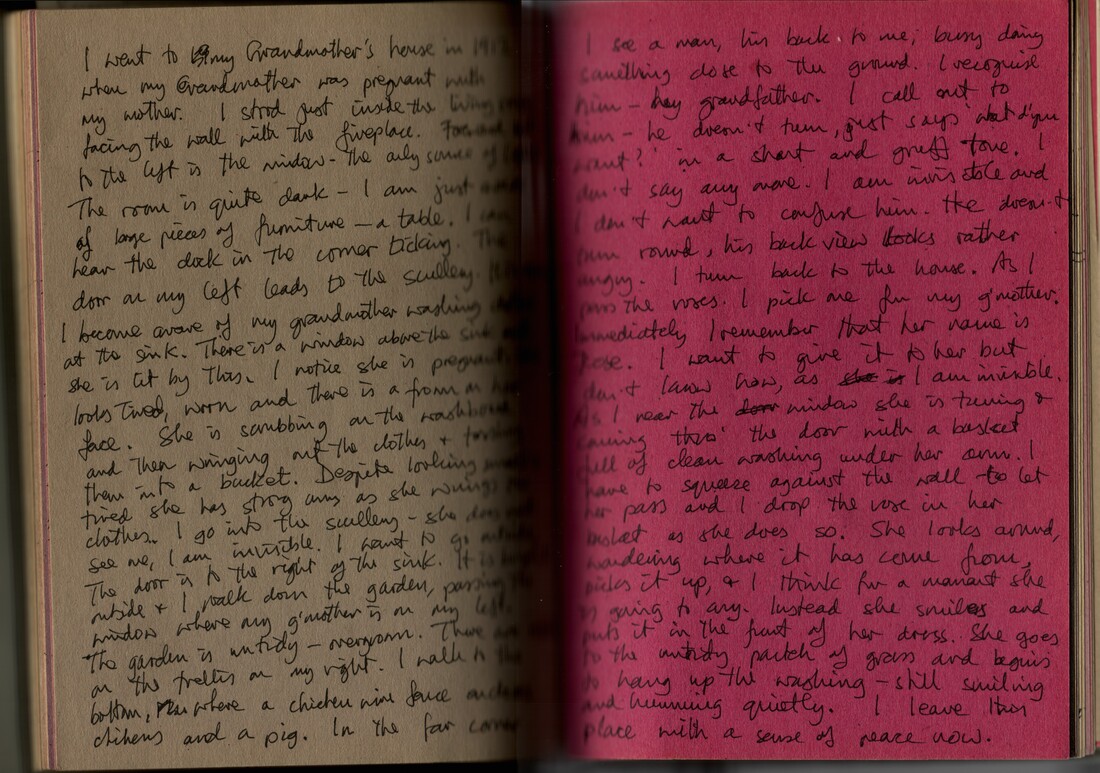 I went to my Grandmother's house in 19
when my Grandmother was pregnant with
my mother. I stood just inside the living
facing the wall with the fireplace. Forward
to the left is the window - the only source of
The room is quite dark - I am just
of large pieces of furniture - a table. I can
hear the clock in the corner ticking. The
door on my left leads to the scullery.
I become aware of my grandmother washing
at the sink. There is a window above the sink
she is lit by this. I notice she is pregnant
looks tired, worn and there is a frown on her
face. She is scrubbing on the washboard
and then wringing out the clothes +
them into a bucket. Despite looking
tired she has strong arms as she wrings
clothes. I go into the scullery - she does
see me, I am invisible. I want to go outside
The door is to the right of the sink. It is
outside + I walk down the garden, passing the
window where my g'mother is on my left.
The garden is untidy - overgrown. There are
on the trellis on my right. I walk to the
bottom, where a chicken wire fence
chickens and a pig. In the far corner
I see a man, his back to me; busy doing
something close to the ground. I recognise
him - my grandfather. I call out to
him - he doesn't turn, just says 'what d'you
want?' in a short and gruff tone. I
don't say any more. I am invisible and
I don't want to confuse him. He doesn't
turn round, his back view looks rather
angry. I turn back to the house. As I
pass the roses. I pick one for my g'mother.
Immediately I remember that her name is
Rose. I want to give it to her but
don't know how, as she is I am invisible.
As I near the door window she is turning &
coming thro' the door with a basket
full of clean washing under her arm. I
have to squeeze against the wall to let
her pass and I drop the rose in her
basket as she does so. She looks around,
wondering where it has come from,
picks it up, & I think for a moment she
is going to cry. Instead she smiles and
puts it in the front of her dress. She goes
to the untidy patch of grass and begins
to hang up the washing - still smiling
and humming quietly. I leave this
place with a sense of peace now.